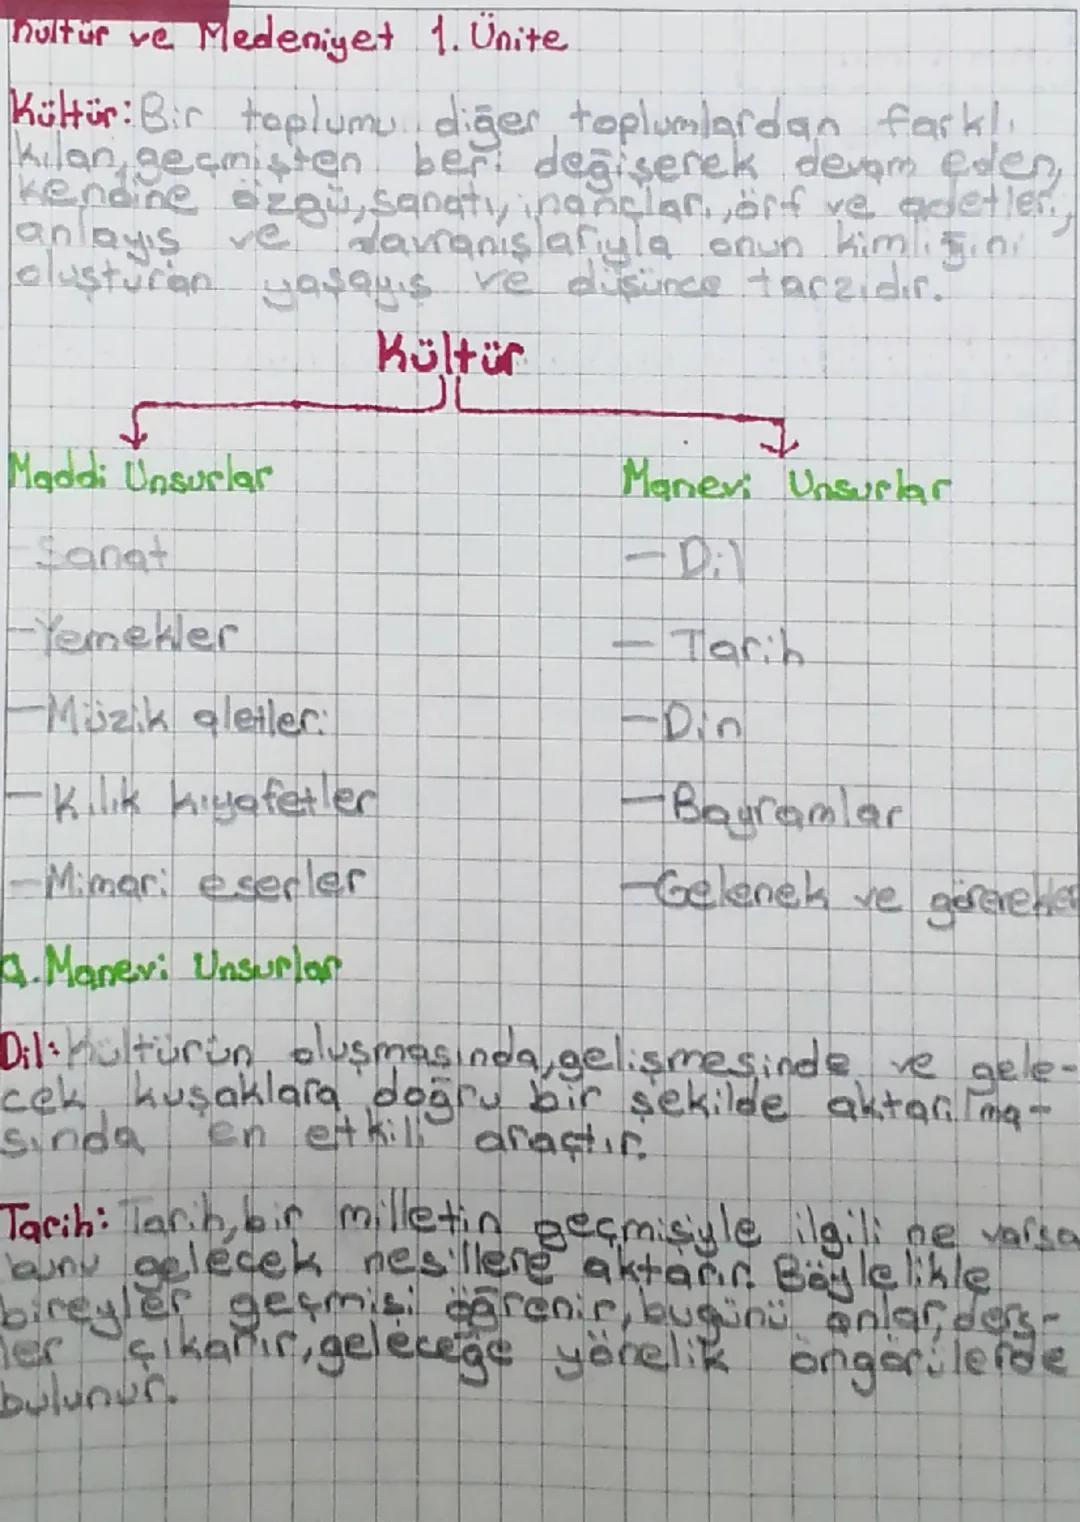 Kültür ve Medeniyet 1. Ünite
Kültür: Bir toplumu diğer toplumlardan farklı
kılan, geçmişten beri değişerek devam eden,
kendine özgü, sanatı, inançları, örf ve adetleri,
anlayış ve davranışlarıyla onun kimliğini
oluşturan yaşayış ve düşünce tarzıdır.
Kültür
Maddi Unsurlar Manevi Unsurlar
-Sanat -Dil
-Yemekler - Tarih
-Müzik aletleri -Din
-Kılık kıyafetler -Bayramlar
-Mimari eserler -Gelenek ve görenekler
a. Manevi Unsurlar
Dil: Kültürün oluşmasında, gelişmesinde ve gele-
cek kuşaklara doğru bir şekilde aktarılma-
sında en etkili araçtır.
Tarih: Tarih, bir milletin geçmişiyle ilgili ne varsa
bunu gelecek nesillere aktarır. Böylelikle
bireyler geçmişi öğrenir, bugünü anlar, ders-
ler çıkarır, geleceğe yönelik öngörülerde
bulunur.